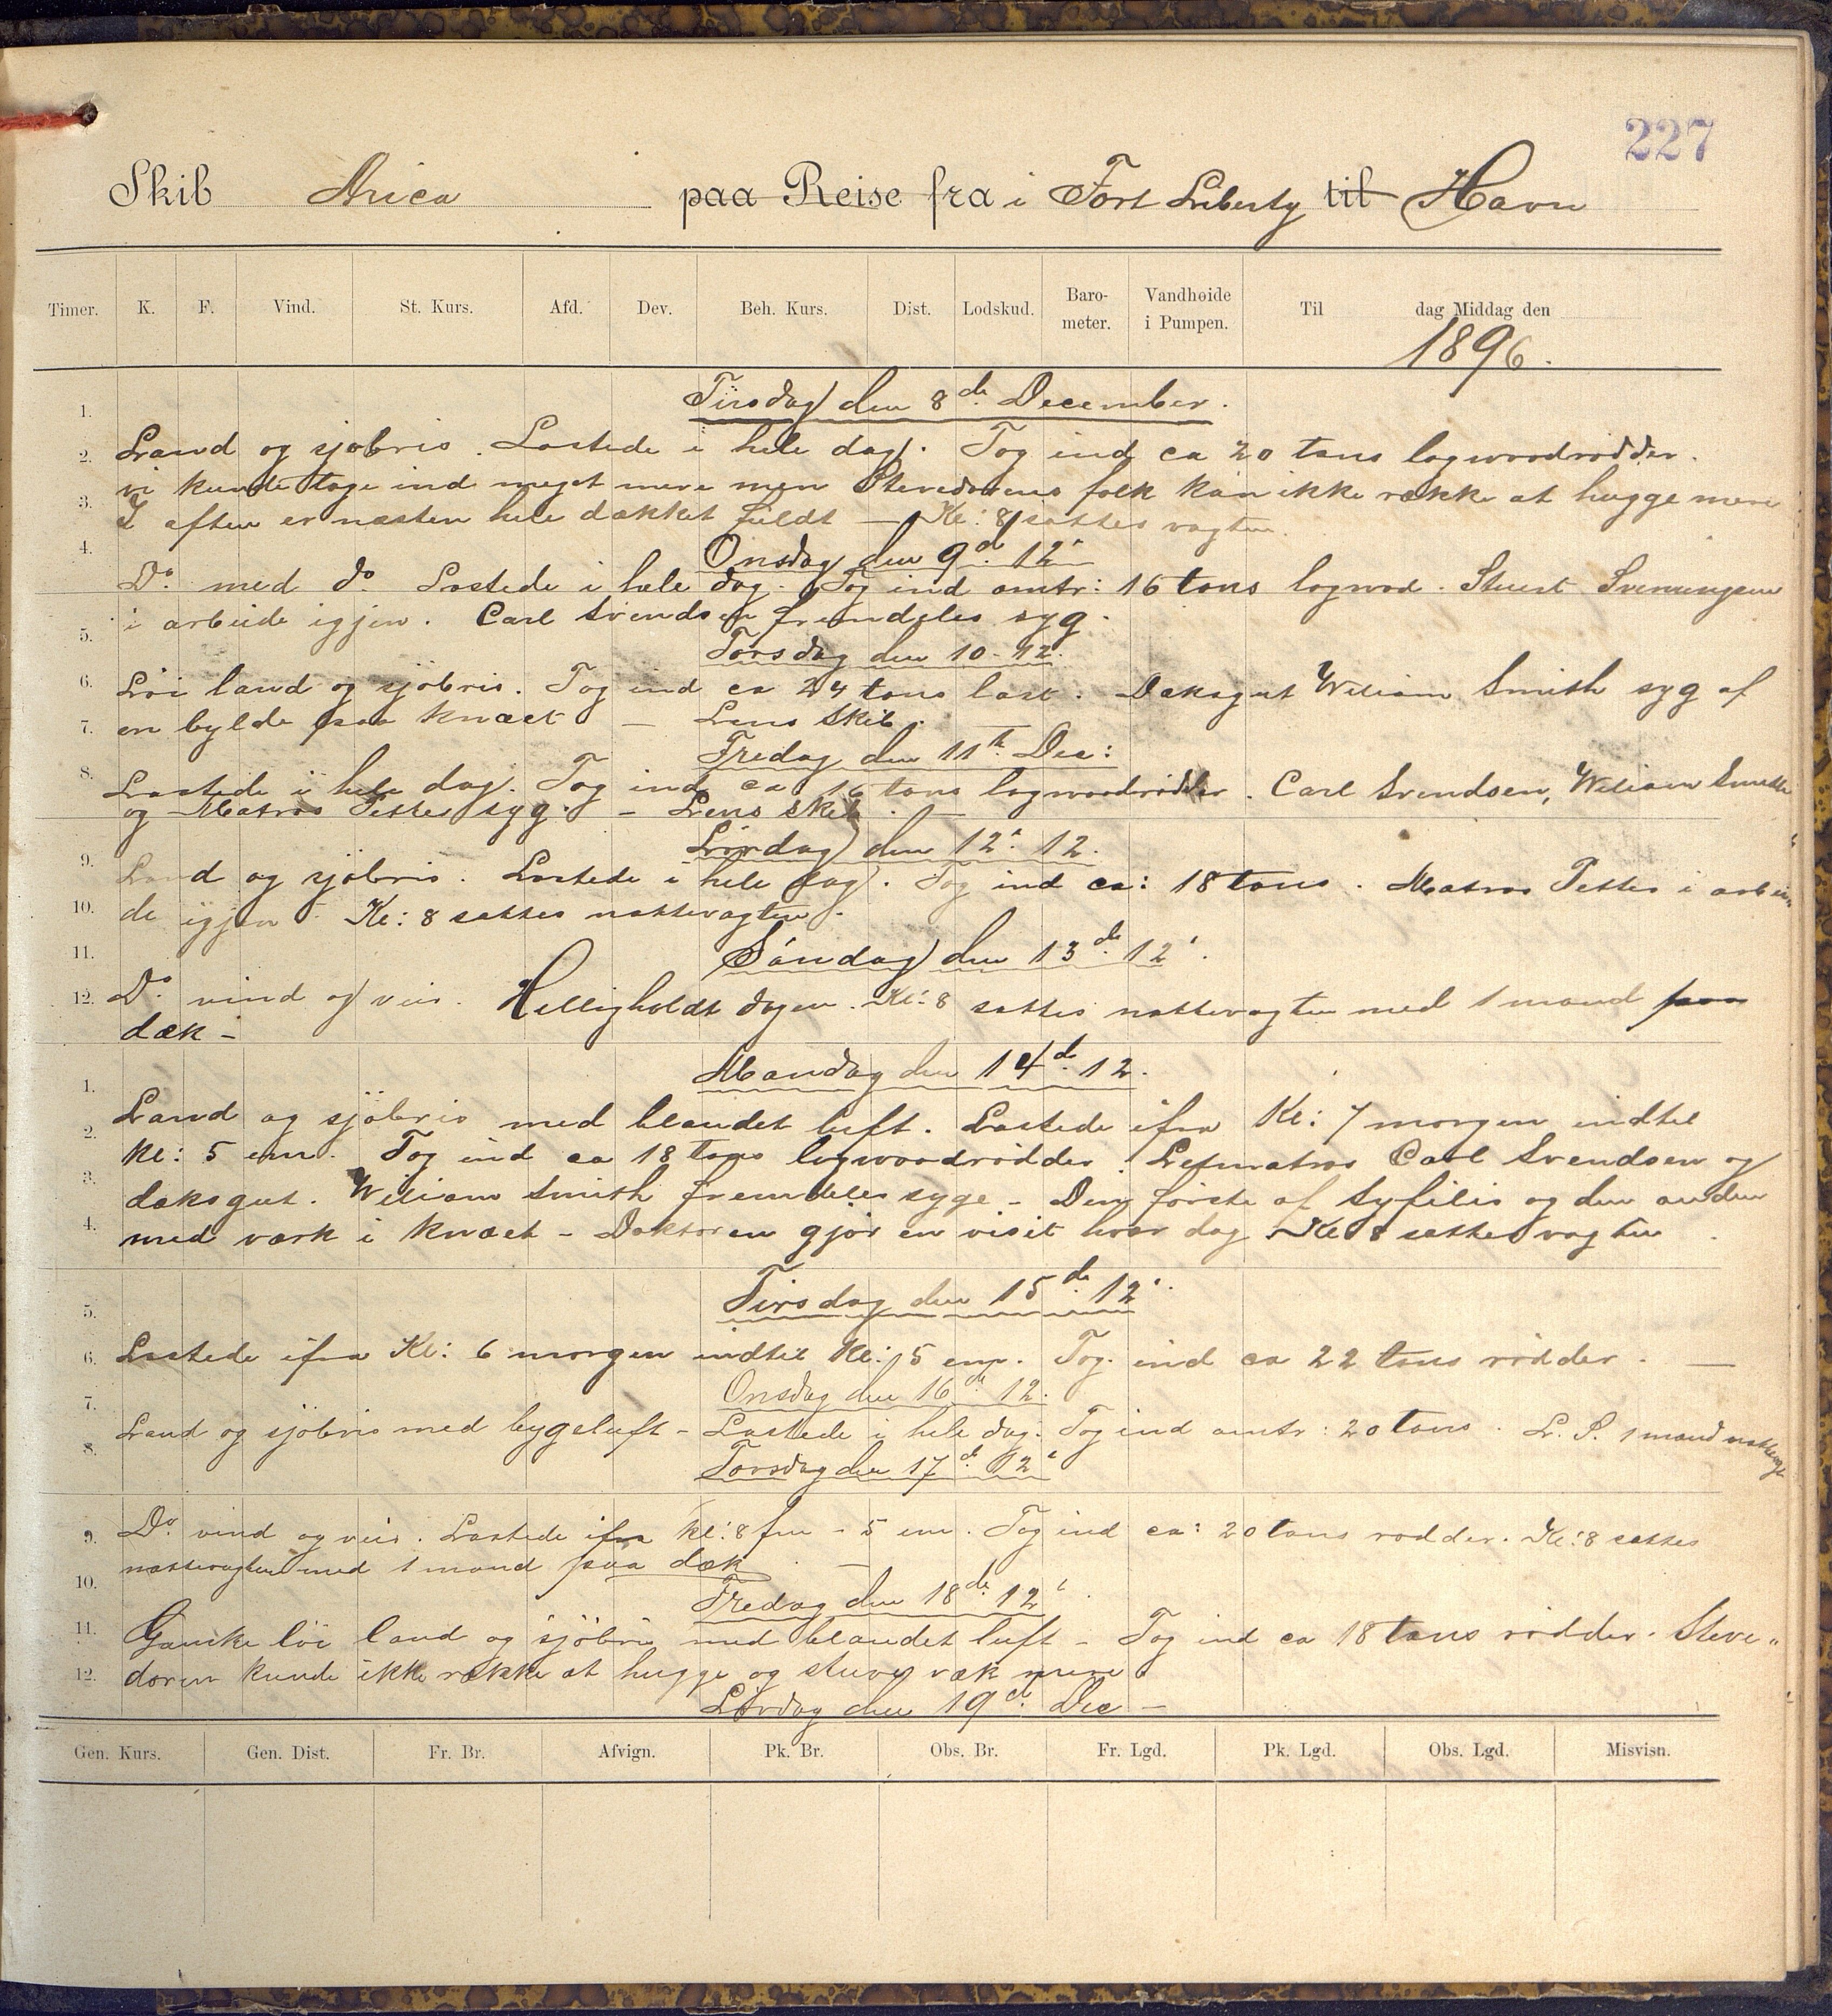 227
Skib Arica paa Reise fra i Fort Liberty til Havn
Timer. K. F. Vind. St. Kurs. Afd. Dev. Beh. Kurs. Dist. Lodskud. Baro-meter. Vandhøide i Pumpen. Til dag Middag den
1896.
Tirsdag den 8de December.
1.
2. Land og sjøbris. Lastede i hele dag. Tog ind ca 20 tons logwoodrødder.
3. vi kunde tage ind meget mere men Stevedorens folk kan ikke række at hugge mere
I aften er næsten hele dækket fuldt — Kl: 8 sattes vagten.
4. Onsdag den 9d 12'
Do. med do. Lastede i hele dag. Tog ind omtr: 16 tons logwod. Stuert Svenningsen
5. i arbeide igjen. Carl Svendsen fremdeles syg.
Torsdag den 10-12.
6. Løi land og sjöbris. Tog ind ca 24 tons last. Daksgut William Smith syg af
7. en bylde paa knæet — Lens Skib.
Fredag den 11te Dec:
8. Lastede i hele dag. Tog ind ca 16 tons logwoodrødder. Carl Svendsen, William Smith
og Matros Petter syg. — Lens skib. —
Lørdag den 12' 12.
9. Land og sjøbris. Lastede i hele dag. Tog ind ca: 18 tons. Matros Petter i arbei
10. de igjen. Kl: 8 sattes nattevagten.
11. Søndag den 13de 12'.
12. Do. vind og veir. Helligholdt dagen. Kl: 8 sattes nattevagten med 1 mand paa
dæk –
Mandag den 14d. 12.
1.
2. Land og sjöbris med blandet luft. Lastede ifra Kl: 7 morgen indtil
Kl: 5 em. Tog ind ca 18 tons logwoodrødder. Letmatros Carl Svendsen og
3. daksgut. William Smith fremdeles syge – Den første af Syfilis og den anden
4. med værk i knæet – Doktoren gjør en visit hver dag Kl 8 sattes vagten.
5. Tirsdag den 15de 12'.
6. Lastede ifra Kl: 6 morgen indtil Kl: 5 em. Tog ind ca 22 tons rødder. —
7. Onsdag den 16d 12.
8. Land og sjøbris med bygeluft – Lastede i hele dag. Tog ind omtr: 20 tons. L. S. 1 mand nattevagt
Torsdag den 17d. 12'
9. Do. vind og veir. Lastede ifra kl: 8 fm – 5 em. Tog ind ca: 20 tons rødder. Kl: 8 sattes
nattevagten med 1 mand paa dæk. —
10. Fredag den 18de. 12'.
11. Ganske löi land og sjöbris med blandet luft – Tog ind ca 18 tons rødder. Steve„
12. doren kunde ikke række at hugge og stuve væk mere
Lørdag den 19d. Dec —
Gen. Kurs. Gen. Dist. Fr. Br. Afvign. Pk. Br. Obs. Br. Fr. Lgd. Pk. Lgd. Obs. Lgd. Misvisn.